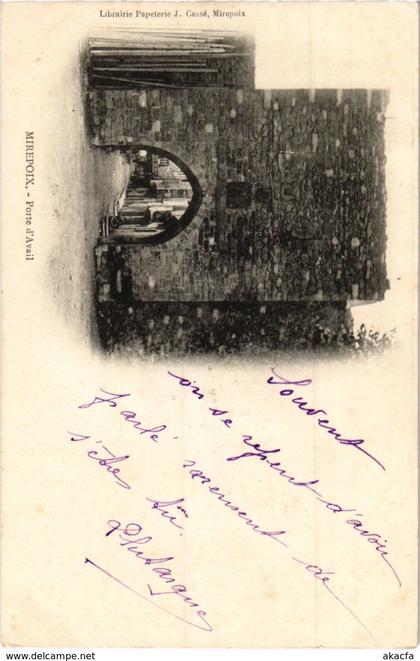 Librairie Papeterie J. Cassé, Mirepoix
MIREPOIX. - Porte d'Avail
Souvent
on se repent d'avoir
parlé rarement de
s'être tû.
Plutarque
www.akacfa.com